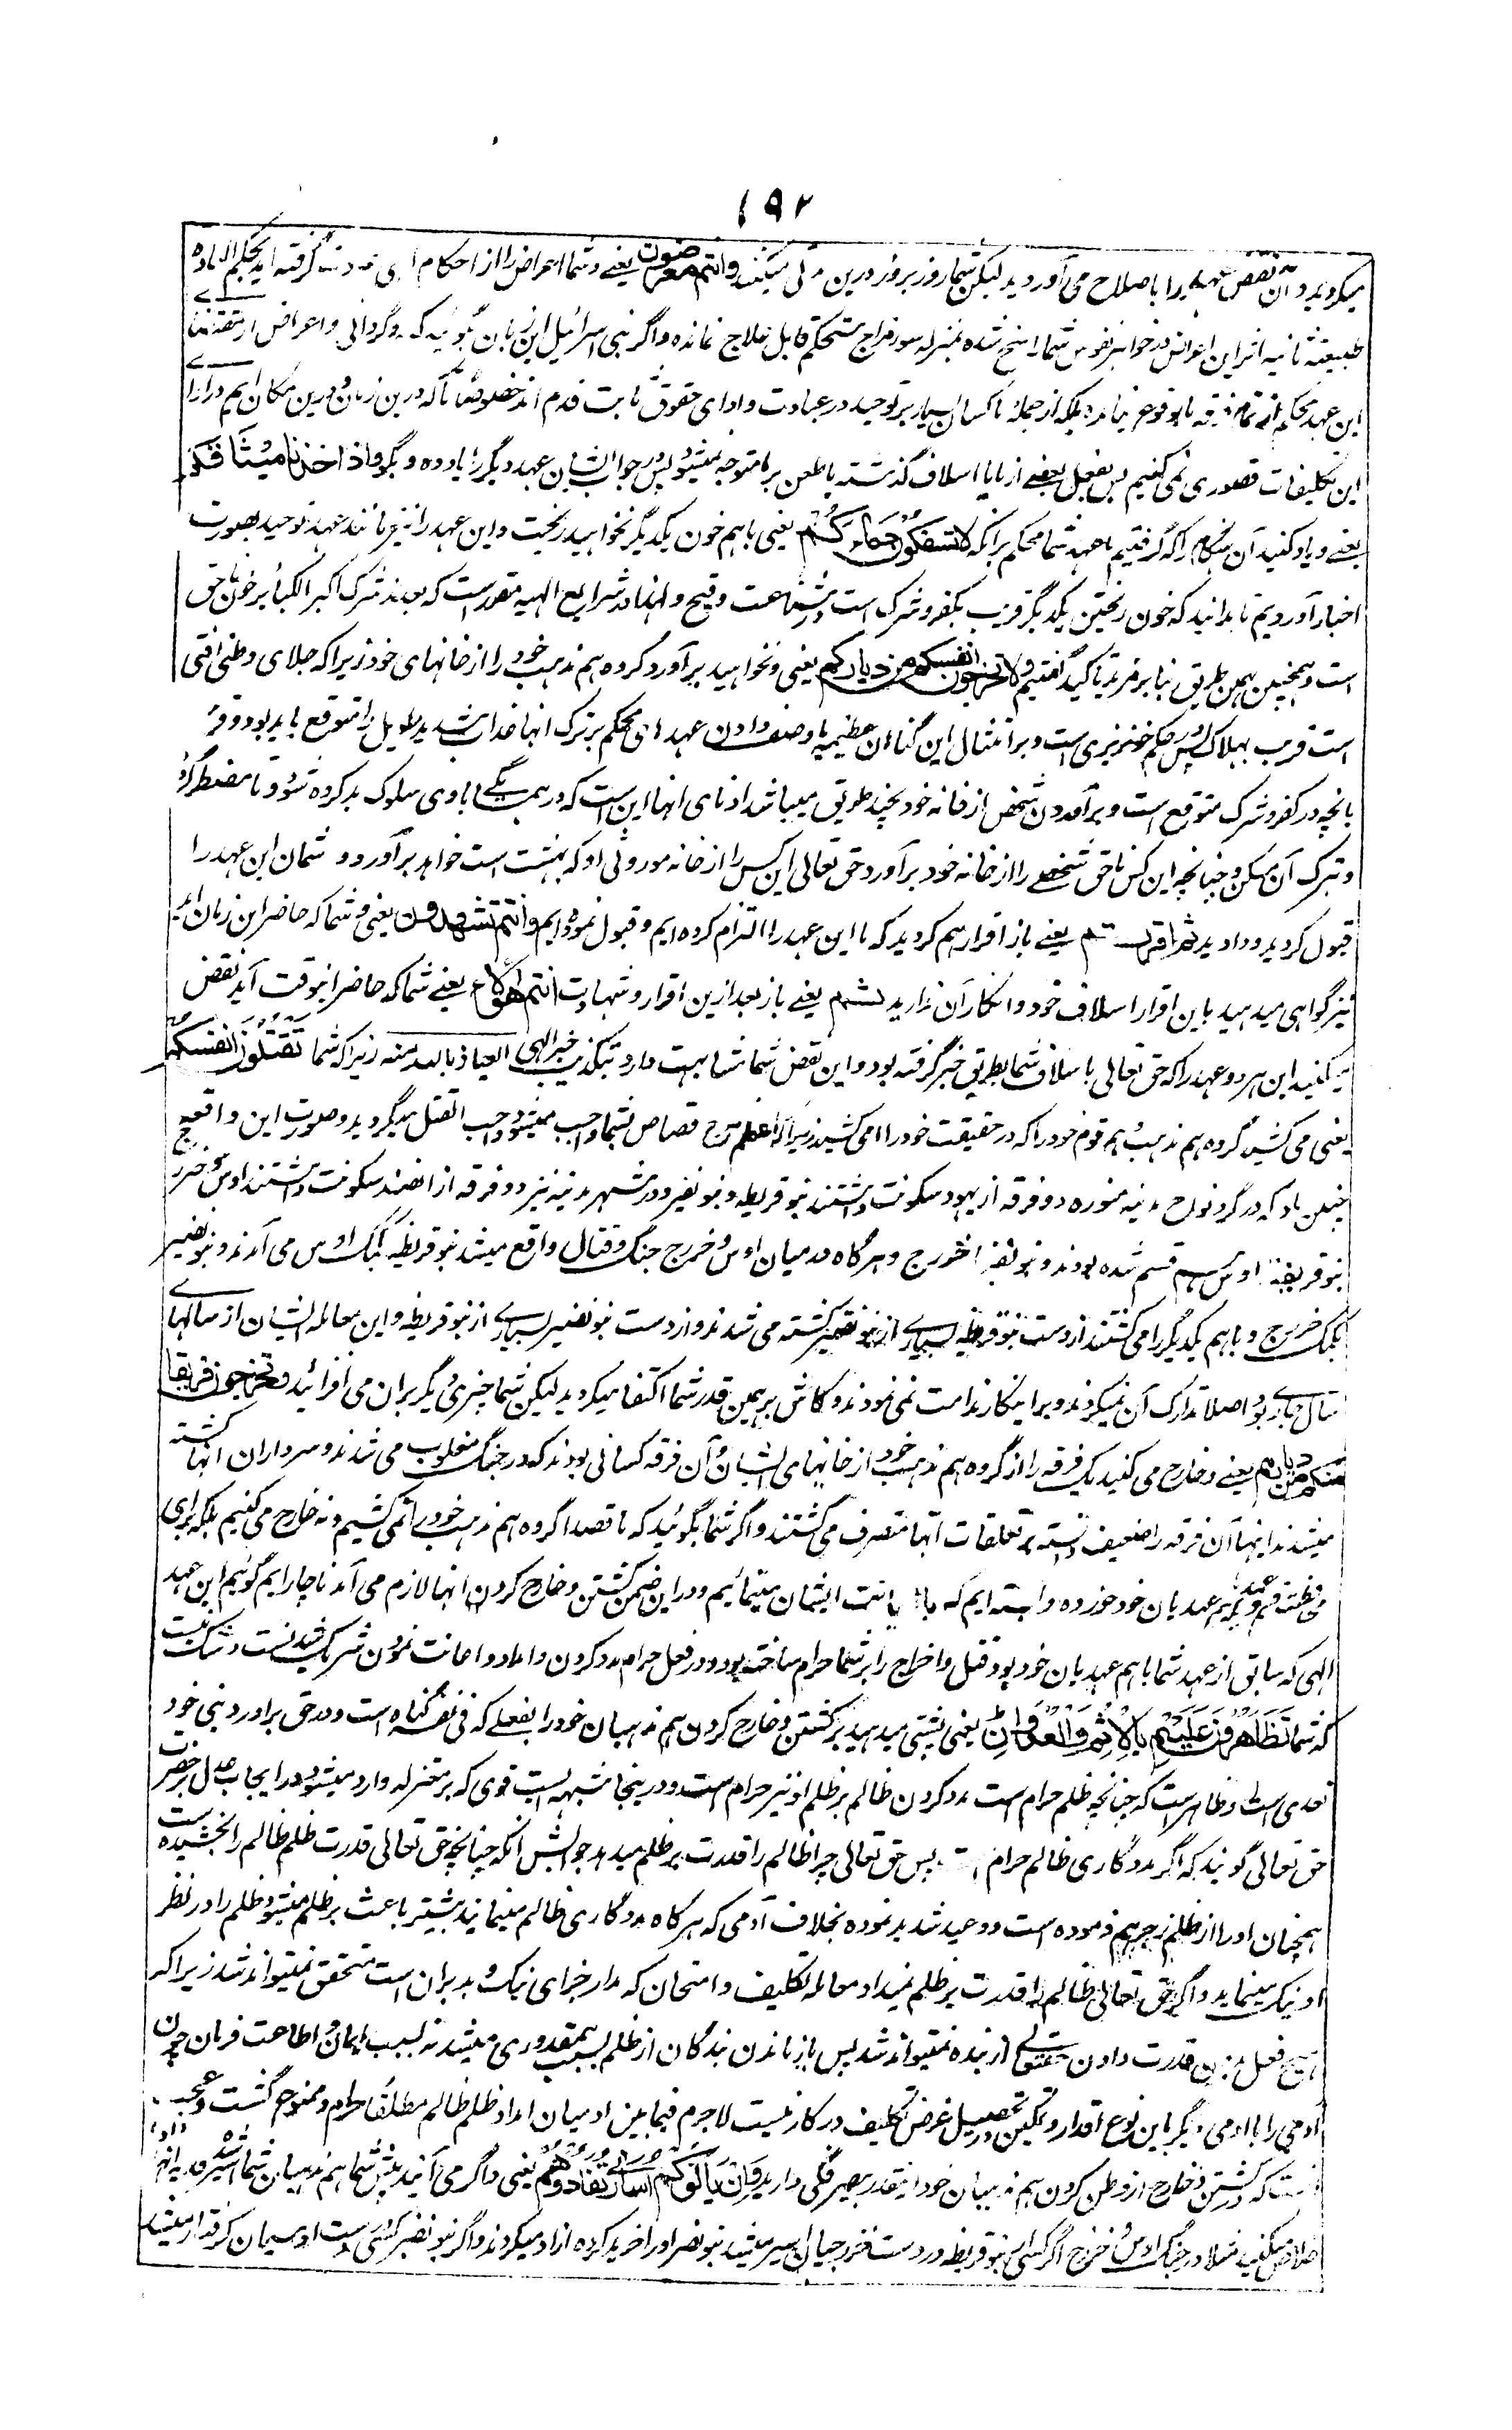 ۱۹۲
میکردید و آن نقض عهد را باصلاح می آوردید لیکن شما روز بروز درین می کنید وانتم معرضون یعنے و شما اعراض را از احکام گرفته اید بحکم العادة
طبیعة ثانیه اثر این اعراض در جواهر نفوس شما راسخ شده بمنزله سوء مزاج مستحکم قابل علاج نمانده و اگر بنی اسرائیل این زبان بگویند که روگردانی و اعراض از مقتضای
این عهد محکم از تمام فرقه ما بوقوع نیامده بلکه از جمله ما کسان بسیار بر توحید در عبادت و ادای حقوق ثابت قدم اند خصوصا ما که درین زمان و درین مکان ایم در ادای
این تکلیفات قصوری نمی کنیم پس بفعل بعضے از آبا و اسلاف گذشته ما طعن بر ما متوجه نمیشود پس در جواب ایشان عهد دیگر را یاد ده و بگو واذ اخذنا میثاقکم
یعنے و یاد کنید آن هنگام را که گرفتیم ما عهد شما محکم بر آنکه لا تسفکون دماءکم یعنی باهم خون یکدیگر نخواهید ریخت و این عهد را نیز مانند عهد توحید بصورت
اخبار آوردیم تا بدانید که خون ریختن یکدیگر قریب بکفر و شرک است در شناعت و قبح و لهذا در شرایع الهیه مقرر است که بعد شرک اکبر الکبائر خون ناحق
است و همچنین بهمین طریق بنا بر مزید تاکید گفتیم ولا تخرجون انفسکم من دیارکم یعنی و نخواهید برآورد گروه هم مذهب خود را از خانهای خود زیرا که جلای وطنی
است قریب بهلاک پس در حکم خونریزی است و بر امتثال این گناهان عظیمه با وصف دادن عهدهای محکم بر ترک انها عذاب شدید طویل را متوقع باید بود
بانچه در کفر و شرک متوقع است و برآمدن شخص از خانه خود بچند طریق میباشد ادنای انها این است که در همسایگے با وی سلوک بد کرده شود تا مضطر گردد
و ترک آن مسکن و چنانچه این کس ناحق شخصے را از خانه خود برآورد حق تعالی این کس را از خانه موروثی او که بهشت است خواهد برآورد و شمایان این عهد را
قبول کردید و دادید ثم اقررتم یعنے باز اقرار هم کردید که ما این عهد را التزام کرده ایم و قبول نموده ایم وانتم تشهدون یعنی و شما که حاضر این زمان اید
نیز گواهی میدهید باین اقرار اسلاف خود و انکار آن ندارید ثم یعنے باز بعد ازین اقرار و شهادت انتم هؤلاء یعنے شما که حاضر اینوقت آید نقض
میکنید این هر دو عهد را که حق تعالی با اسلاف شما بطریق خبر گرفته بود و این نقض شما مشابهت دارد بتکذیب خبر الهی العیاذ بالله منه زیرا که شما تقتلون انفسکم
یعنی می کشید گروه هم مذهب و هم قوم خود را که در حقیقت خود را می کشید زیرا که قصاص بر شما واجب میشود و واجب القتل میگردید و صورت این واقعه
چنین بود که در گرد نواح مدینه منوره دو فرقه از یهود سکونت داشتند بنو قریظه و بنو نضیر و در شهر مدینه نیز دو فرقه از انصار سکونت داشتند اوس و خزرج
بنو قریظه با اوس هم قسم شده بودند و بنو نضیر با خزرج و هرگاه در میان اوس و خزرج جنگ و قتال واقع میشد بنو قریظه بکمک اوس می آمدند و بنو نضیر
بکمک خزرج و باهم یکدیگر را می کشتند از دست بنو قریظه بسیارے از بنو نضیر کشته می شدند و از دست بنو نضیر بسیارے از بنو قریظه و این معامله ایشان از سالها
سال جاری بود اصلا تدارک آن نمیکردند و بر اینکار ندامت نمی نمودند و کاش بر همین قدر شما اکتفا میکردید لیکن شما چیزی دیگر بران می افزائید وتخرجون فریقا
منکم من دیارهم یعنے و خارج می کنید یک فرقه را از گروه هم مذهب خود از خانهای ایشان و آن فرقه کسانی بودند که در جنگ مغلوب می شدند و سرداران انها کشته
میشدند اینها آن فرقه را ضعیف دانسته بر تعلقات آنها متصرف می گشتند و اگر شما بگوئید که ما قصدا گروه هم مذهب خود را نمی کشیم و نه خارج می کنیم بلکه برای
محافظت قسم و عهد که بهم عهدیان خود خورده و بسته ایم که ما اعانت ایشان مینمائیم و در این ضمن کشتن و خارج کردن انها لازم می آمد ناچار ایم گوئیم این عهد
الهی که سابق از عهد شما با هم عهدیان خود بود قتل و اخراج را بر شما حرام ساخته بود و در فعل حرام مدد کردن و امداد و اعانت نمودن شریک شدنست و شک نیست
که شما تظاهرون علیهم بالاثم والعدوان یعنی پشتی میدهید بر کشتن و خارج کردن هم مذهبان خود را بفعلے که فی نفسه گناه است و در حق برادر دینی خود
تعدی است و ظاهر است که چنانچه ظلم حرام است مدد کردن ظالم بر ظلم او نیز حرام است و درینجا شبهه ایست قوی که بر معتزله وارد میشود در ایجاب عدل بر حضرت
حق تعالی گویند که اگر مددگاری ظالم حرام است پس حق تعالی چرا ظالم را قدرت بر ظلم میدهد جوابش آنکه چنانچه حق تعالی قدرت ظلم ظالم را بخشیده است
همچنان او را از ظلم زجر هم فرموده است و وعید شدید نموده بخلاف آدمی که هرگاه مددگاری ظالم مینماید بیشتر باعث بر ظلم میشود و ظلم را در نظر
او نیک مینماید و اگر حق تعالی ظالم را قدرت بر ظلم نمیداد معامله تکلیف و امتحان که مدار جزای نیک و بد بران است متحقق نمیتواند شد زیرا که
هیچ فعل بدون قدرت دادن حق تعالی از بنده نمیتواند شد پس باز ماندن بندگان از ظلم بسبب بیمقدوری میشد نه بسبب ایمان و اطاعت فرمان چون
آدمی را با آدمی دیگر باین نوع اقدار و تمکین تحصیل غرض تکلیف در کار نیست لاجرم فیما بین ادمیان امداد ظلم ظالم مطلقا حرام و ممنوع گشت و عجب
است که در کشتن و خارج از وطن کردن هم مذهبان خود اینقدر بیصرفگی دارید وان یأتوکم اساری تفادوهم یعنی و اگر می آیند پیش شما هم مذهبان شما اسیر شده فدیه انها داده
خلاص میکنید مثلا در جنگ اوس و خزرج اگر کسی از بنو قریظه در دست خزرجیان اسیر میشد بنو نضیر او را خرید کرده ازاد میکردند و اگر بنو نضیر کسی بدست اوسیان گرفتار میشد